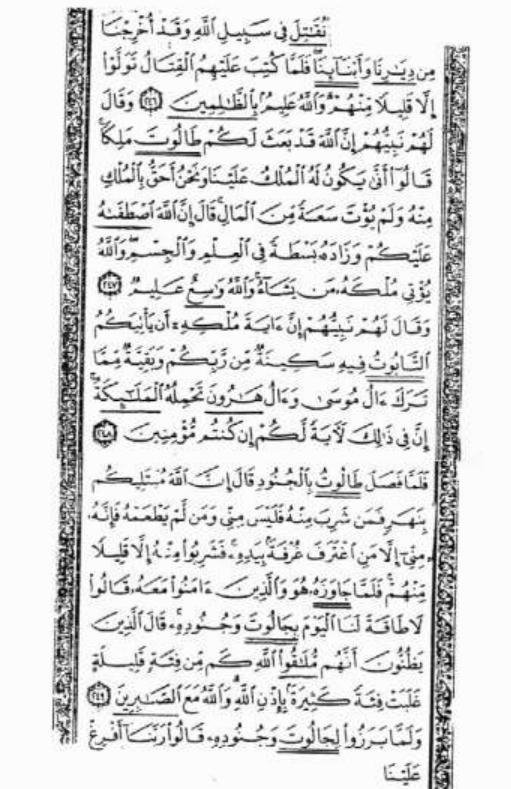 نُقَٰتِلَ فِي سَبِيلِ اللَّهِ وَقَدْ أُخْرِجْنَا
مِن دِيَٰرِنَا وَأَبْنَآئِنَا فَلَمَّا كُتِبَ عَلَيْهِمُ الْقِتَالُ تَوَلَّوْا
إِلَّا قَلِيلًا مِّنْهُمْ وَاللَّهُ عَلِيمٌ بِالظَّٰلِمِينَ ٢٤٦ وَقَالَ
لَهُمْ نَبِيُّهُمْ إِنَّ اللَّهَ قَدْ بَعَثَ لَكُمْ طَالُوتَ مَلِكًا
قَالُوٓا أَنَّىٰ يَكُونُ لَهُ الْمُلْكُ عَلَيْنَا وَنَحْنُ أَحَقُّ بِالْمُلْكِ
مِنْهُ وَلَمْ يُؤْتَ سَعَةً مِّنَ الْمَالِ قَالَ إِنَّ اللَّهَ اصْطَفَىٰهُ
عَلَيْكُمْ وَزَادَهُ بَسْطَةً فِي الْعِلْمِ وَالْجِسْمِ وَاللَّهُ
يُؤْتِي مُلْكَهُ مَن يَشَآءُ وَاللَّهُ وَٰسِعٌ عَلِيمٌ ٢٤٧
وَقَالَ لَهُمْ نَبِيُّهُمْ إِنَّ ءَايَةَ مُلْكِهِ أَن يَأْتِيَكُمُ
التَّابُوتُ فِيهِ سَكِينَةٌ مِّن رَّبِّكُمْ وَبَقِيَّةٌ مِّمَّا
تَرَكَ ءَالُ مُوسَىٰ وَءَالُ هَٰرُونَ تَحْمِلُهُ الْمَلَٰٓئِكَةُ
إِنَّ فِي ذَٰلِكَ لَآيَةً لَّكُمْ إِن كُنتُم مُّؤْمِنِينَ ٢٤٨
فَلَمَّا فَصَلَ طَالُوتُ بِالْجُنُودِ قَالَ إِنَّ اللَّهَ مُبْتَلِيكُم
بِنَهَرٍ فَمَن شَرِبَ مِنْهُ فَلَيْسَ مِنِّي وَمَن لَّمْ يَطْعَمْهُ فَإِنَّهُ
مِنِّيٓ إِلَّا مَنِ اغْتَرَفَ غُرْفَةً بِيَدِهِ فَشَرِبُوا مِنْهُ إِلَّا قَلِيلًا
مِّنْهُمْ فَلَمَّا جَاوَزَهُ هُوَ وَالَّذِينَ ءَامَنُوا مَعَهُ قَالُوا
لَا طَاقَةَ لَنَا الْيَوْمَ بِجَالُوتَ وَجُنُودِهِ قَالَ الَّذِينَ
يَظُنُّونَ أَنَّهُم مُّلَٰقُوا اللَّهِ كَم مِّن فِئَةٍ قَلِيلَةٍ
غَلَبَتْ فِئَةً كَثِيرَةً بِإِذْنِ اللَّهِ وَاللَّهُ مَعَ الصَّٰبِرِينَ ٢٤٩
وَلَمَّا بَرَزُوا لِجَالُوتَ وَجُنُودِهِ قَالُوا رَبَّنَآ أَفْرِغْ
عَلَيْنَا